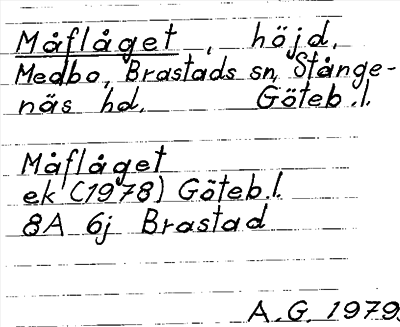 Måflåget, höjd.
Medbo, Brastads sn, Stånge-
näs hd. Göteb.l.
Måflåget
ek (1978) Göteb.l.
8A 6j Brastad
A.G. 1979.